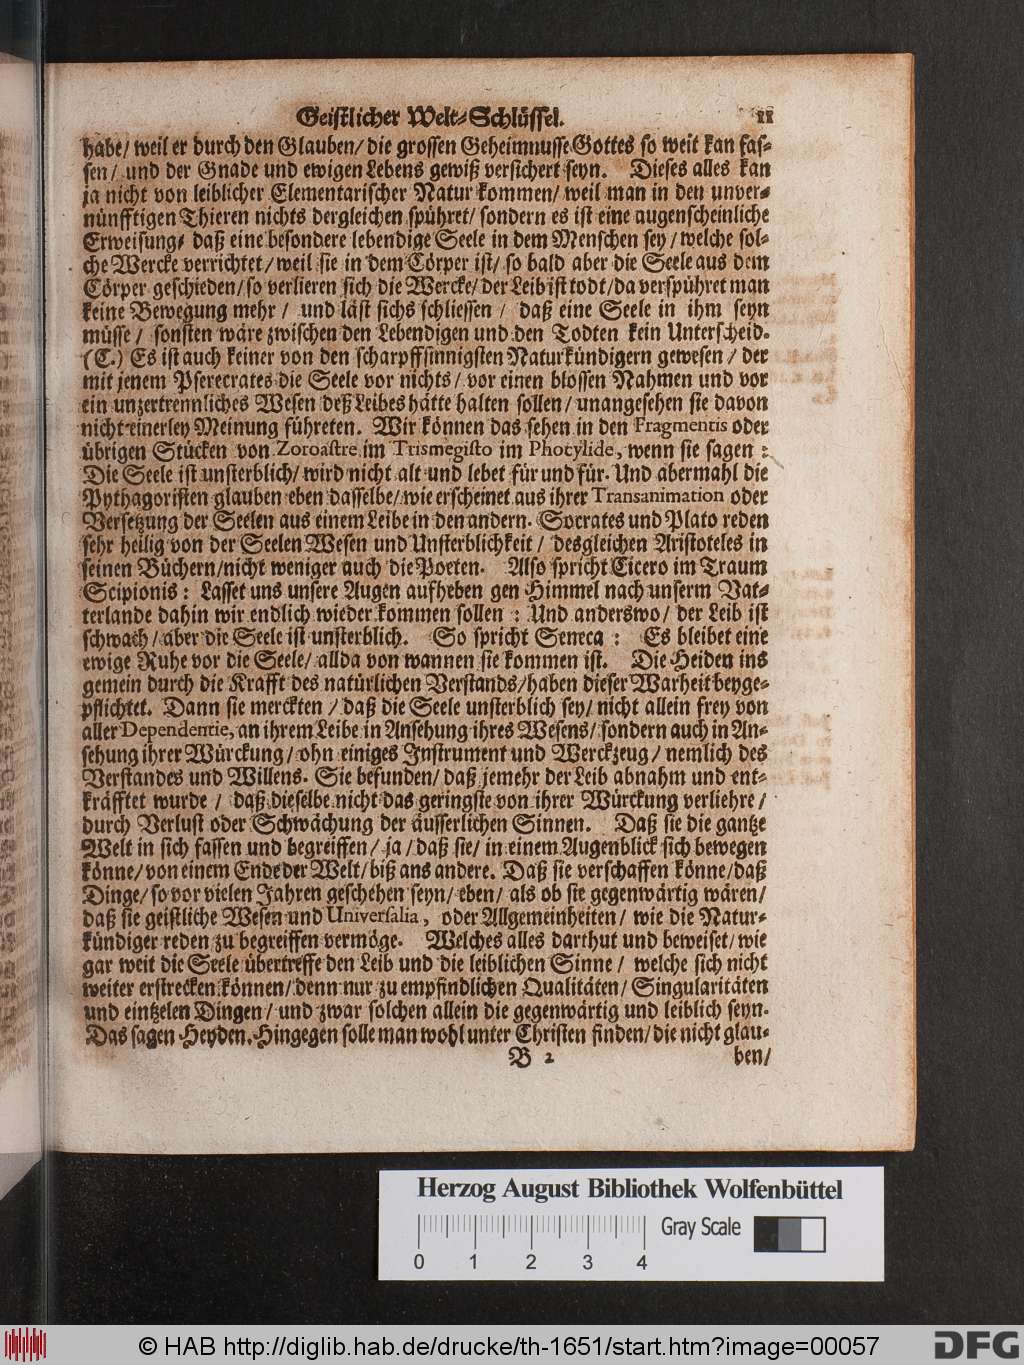 Geistlicher Welt-Schlüssel. 11
habe/ weil er durch den Glauben/ die grossen Geheimnusse Gottes so weit kan fas-
sen/ und der Gnade und ewigen Lebens gewiß versichert seyn. Dieses alles kan
ja nicht von leiblicher Elementarischer Natur kommen/ weil man in den unver-
nünfftigen Thieren nichts dergleichen spühret/ sondern es ist eine augenscheinliche
Erweisung/ daß eine besondere lebendige Seele in dem Menschen sey/ welche sol-
che Wercke verrichtet/ weil sie in dem Cörper ist/ so bald aber die Seele aus dem
Cörper geschieden/ so verlieren sich die Wercke/ der Leib ist todt/ da verspühret man
keine Bewegung mehr/ und läst sichs schliessen/ daß eine Seele in ihm seyn
müsse/ sonsten wäre zwischen den Lebendigen und den Todten kein Unterscheid.
(C.) Es ist auch keiner von den scharpffsinnigsten Naturkündigern gewesen/ der
mit jenem Pserecrates die Seele vor nichts/ vor einen blossen Nahmen und vor
ein unzertrennliches Wesen deß Leibes hätte halten sollen/ unangesehen sie davon
nicht einerley Meinung führeten. Wir können das sehen in den Fragmentis oder
übrigen Stücken von Zoroastre im Trismegisto im Phocylide, wenn sie sagen:
Die Seele ist unsterblich/ wird nicht alt und lebet für und für. Und abermahl die
Pythagoristen glauben eben dasselbe/ wie erscheinet aus ihrer Transanimation oder
Versetzung der Seelen aus einem Leibe in den andern. Socrates und Plato reden
sehr heilig von der Seelen Wesen und Unsterblichkeit/ desgleichen Aristoteles in
seinen Büchern/ nicht weniger auch die Poeten. Also spricht Cicero im Traum
Scipionis: Lasset uns unsere Augen aufheben gen Himmel nach unserm Vat-
terlande dahin wir endlich wieder kommen sollen: Und anderswo/ der Leib ist
schwach/ aber die Seele ist unsterblich. So spricht Seneca: Es bleibet eine
ewige Ruhe vor die Seele/ allda von wannen sie kommen ist. Die Heiden ins
gemein durch die Krafft des natürlichen Verstands/ haben dieser Warheit beyge-
pflichtet. Dann sie merckten/ daß die Seele unsterblich sey/ nicht allein frey von
aller Dependentie, an ihrem Leibe in Ansehung ihres Wesens/ sondern auch in An-
sehung ihrer Würckung/ ohn einiges Instrument und Werckzeug/ nemlich des
Verstandes und Willens. Sie befunden/ daß jemehr der Leib abnahm und ent-
kräfftet wurde/ daß dieselbe nicht das geringste von ihrer Würckung verliehre/
durch Verlust oder Schwächung der äusserlichen Sinnen. Daß sie die gantze
Welt in sich fassen und begreiffen/ ja/ daß sie/ in einem Augenblick sich bewegen
könne/ von einem Ende der Welt/ biß ans andere. Daß sie verschaffen könne/ daß
Dinge/ so vor vielen Jahren geschehen seyn/ eben/ als ob sie gegenwärtig wären/
daß sie geistliche Wesen und Universalia, oder Allgemeinheiten/ wie die Natur-
kündiger reden zu begreiffen vermöge. Welches alles darthut und beweiset/ wie
gar weit die Seele übertreffe den Leib und die leiblichen Sinne/ welche sich nicht
weiter erstrecken können/ denn nur zu empfindlichen Qualitäten/ Singularitäten
und eintzelen Dingen/ und zwar solchen allein die gegenwärtig und leiblich seyn.
Das sagen Heyden. Hingegen solle man wohl unter Christen finden/ die nicht glau-
B 2 ben/
Herzog August Bibliothek Wolfenbüttel
Gray Scale
0 1 2 3 4
© HAB http://diglib.hab.de/drucke/th-1651/start.htm?image=00057
DFG